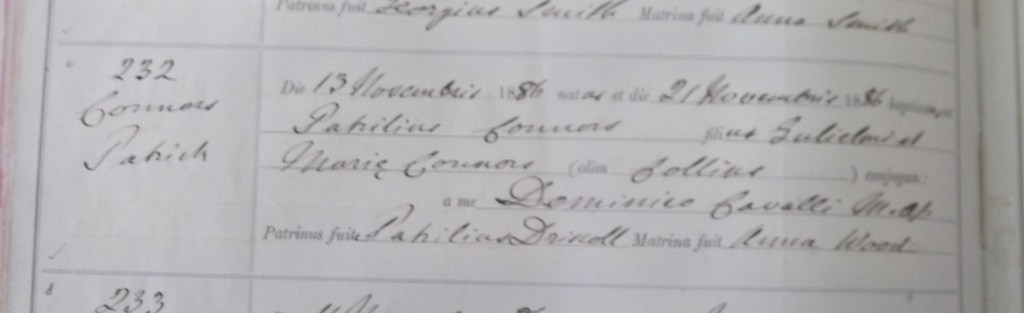 Patrinus fuit Georgius Smith Matrina fuit Anna Smith
232
Connors
Patrick
Die 13 Novembris 1886 natus et die 21 Novembris 1886 baptizatus est
Patritius Connors filius Gulielmi et
Mariæ Connors (olim Collins) conjugum:
a me Dominico Cavalli M. Ap.
Patrinus fuit Patritius Driscoll Matrina fuit Anna Wood
233